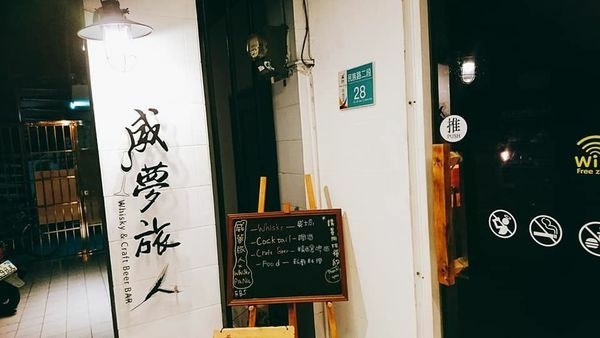 威夢旅人
Whisky & Craft Beer BAR
民族路二段
28
推
PUSH
Wi
Free z
威夢旅人
Whisky
—Whisky—
—Cocktail—調酒
—Craft Beer—精釀啤酒
—Food—私廚料理